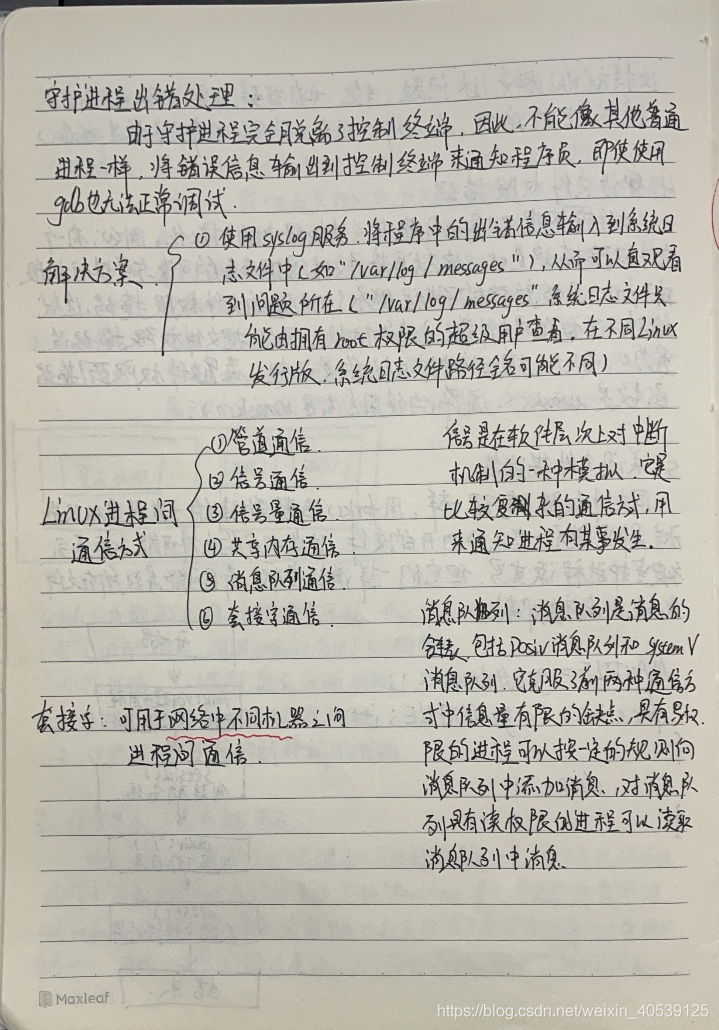 守护进程出错处理：
由于守护进程完全脱离了控制终端，因此，不能像其他普通
进程一样，将错误信息输出到控制终端来通知程序员，即使使用
gdb也无法正常调试．
解决方案．
① 使用syslog服务，将程序中的出错信息输入到系统日
志文件中（如"/var/log/messages"），从而可以直观看
到问题所在（"/var/log/messages"系统日志文件只
能由拥有root权限的超级用户查看．在不同Linux
发行版，系统日志文件路径全名可能不同）
Linux进程间
通信方式
①管道通信．
②信号通信．
③信号量通信．
④共享内存通信．
⑤消息队列通信．
⑥套接字通信．
信号是在软件层次上对中断
机制的一种模拟，它是
比较复杂的通信方式，用
来通知进程有某事发生．
消息队列：消息队列是消息的
链表，包括Posix消息队列和System V
消息队列．它克服了前两种通信方
式中信息量有限的缺点，具有写权
限的进程可以按一定的规则向
消息队列中添加消息，对消息队
列具有读权限的进程可以读取
消息队列中消息．
套接字：可用于网络中不同机器之间
进程间通信．
Maxleaf
https://blog.csdn.net/weixin_40539125